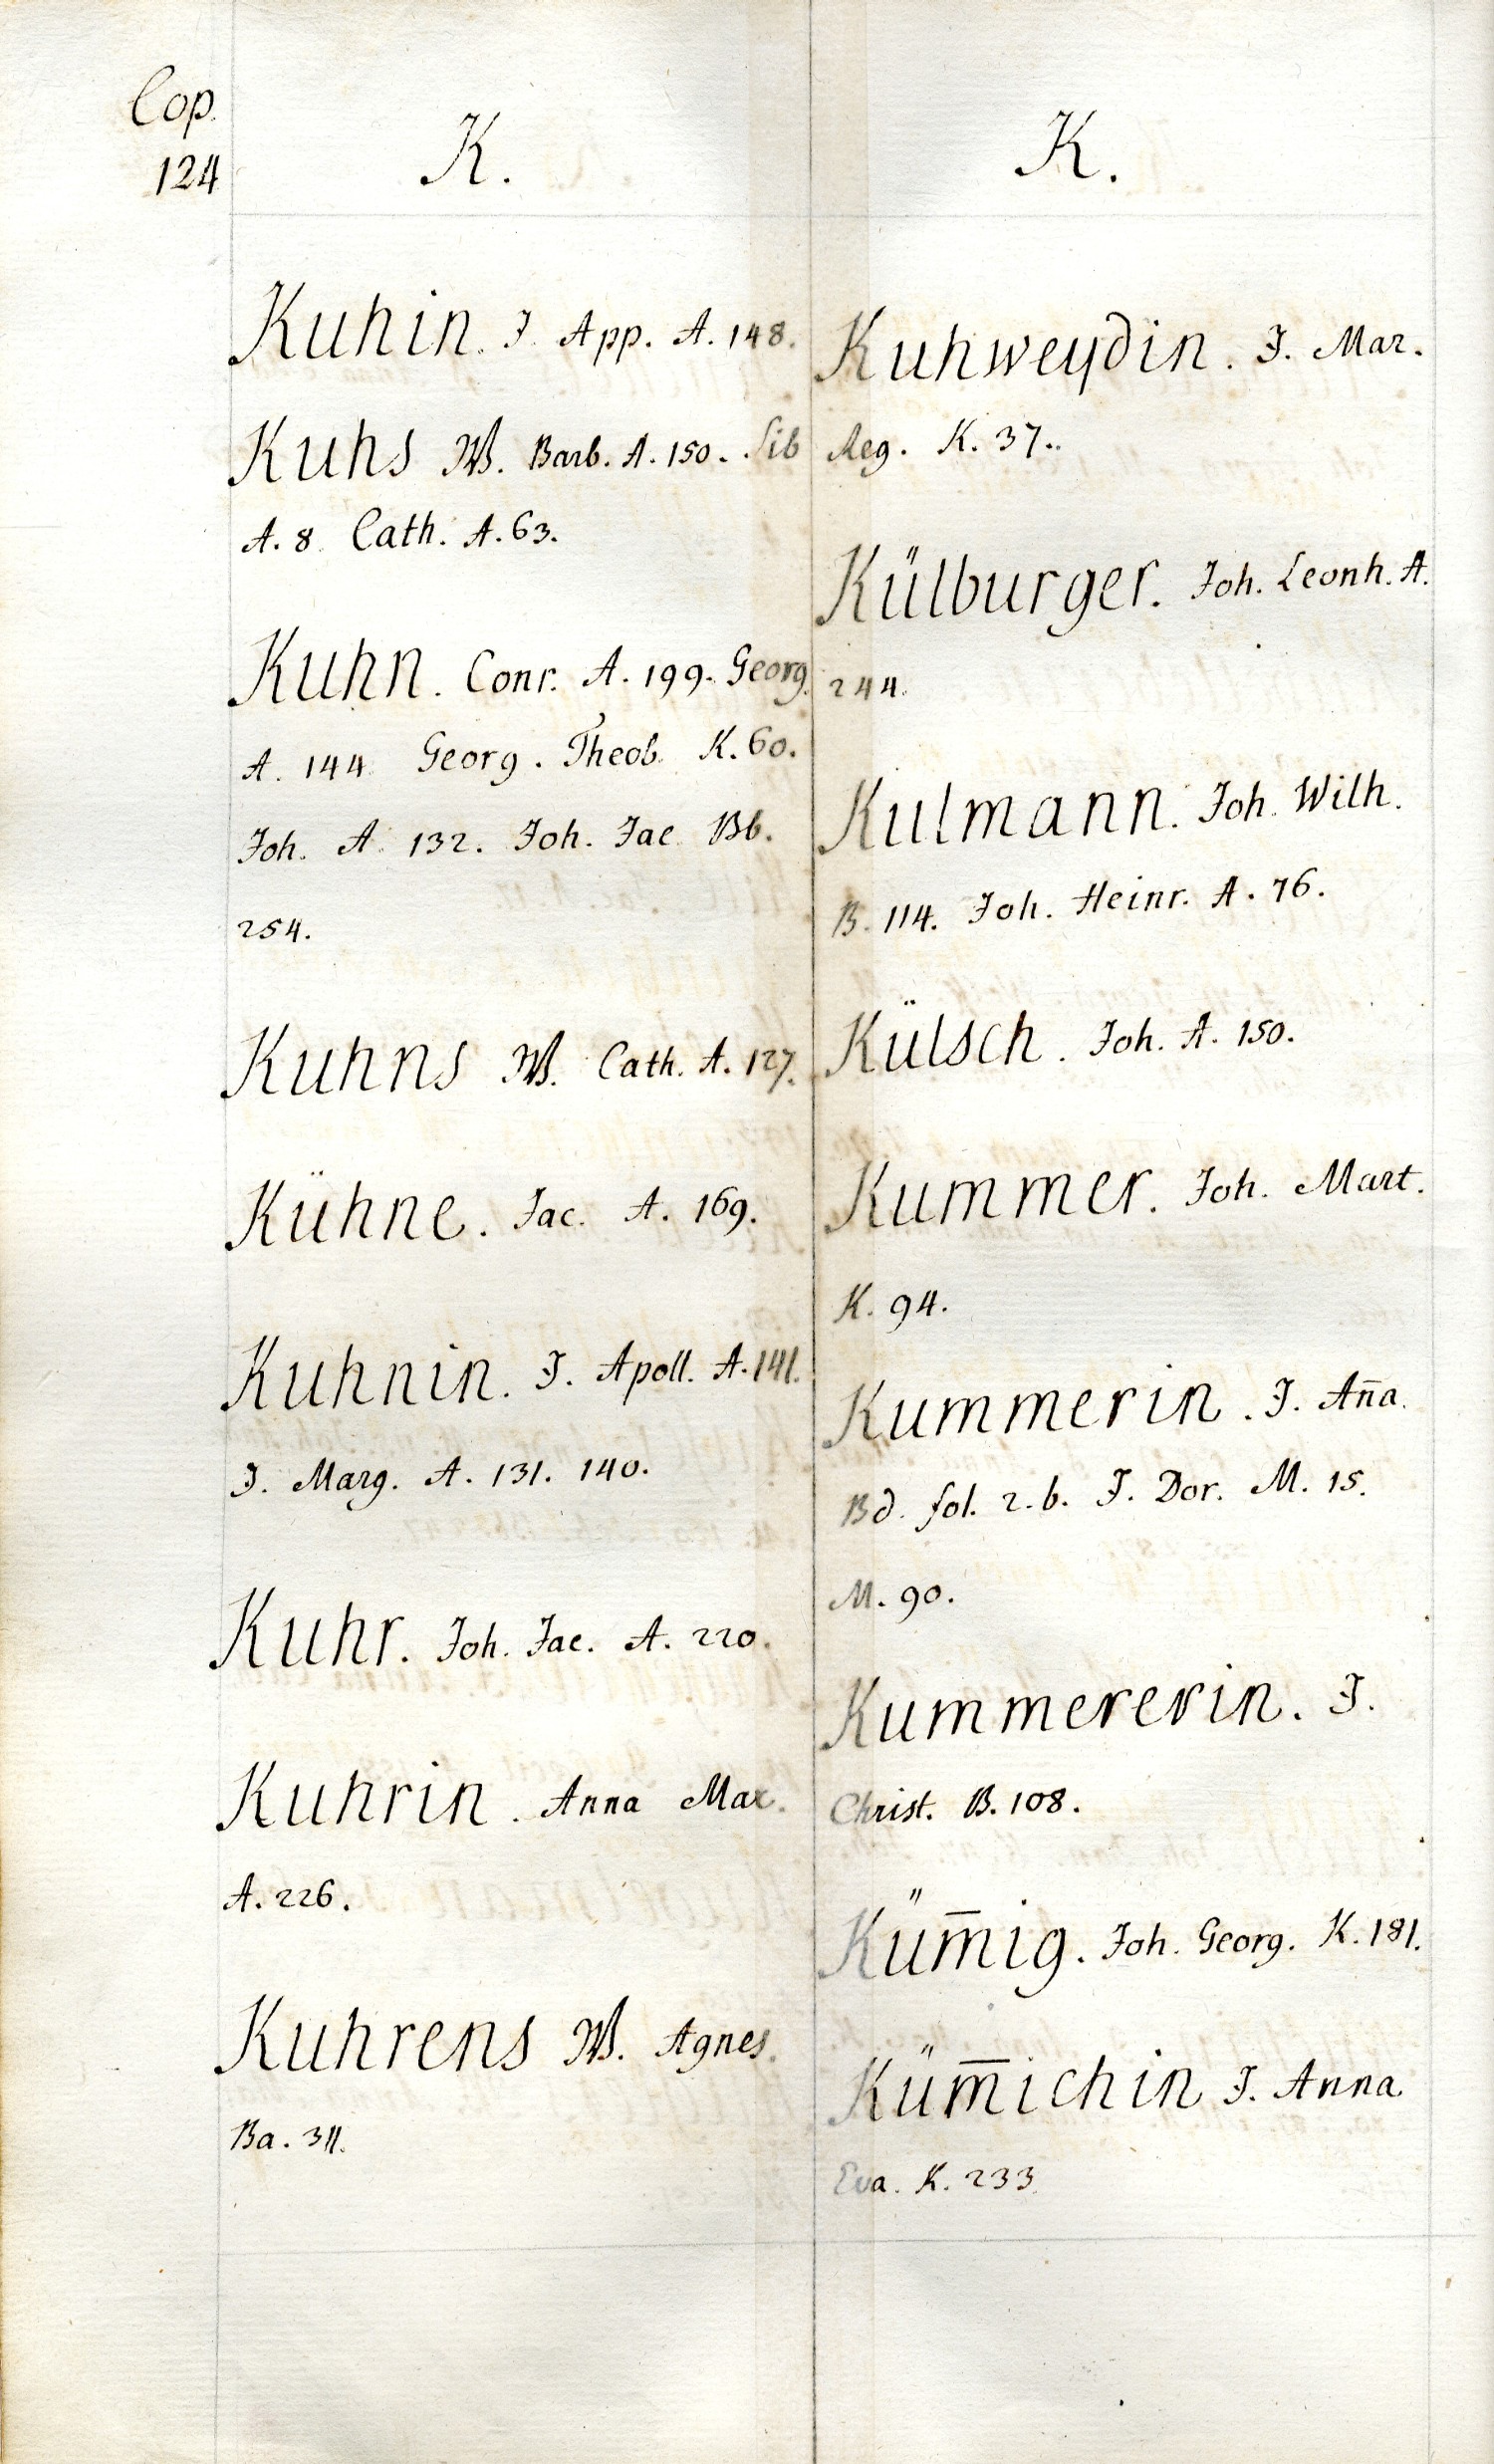 Cop.
124
K.
Kuhin. J. App. A. 148.
Kuhs W. Barb. A. 150. Sib
A. 8. Cath. A. 63.
Kuhn. Conr. A. 199. Georg.
A. 144. Georg. Theob. K. 60.
Joh. A. 132. Joh. Jac. Bb.
254.
Kuhns W. Cath. A. 127.
Kühne. Jac. A. 169.
Kuhnin. J. Apoll. A. 141.
J. Marg. A. 131. 140.
Kuhr. Joh. Jac. A. 220.
Kuhrin. Anna Mar.
A. 226.
Kuhrens W. Agnes.
Ba. 311.
K.
Kuhweydin. J. Mar.
Reg. K. 37.
Külburger. Joh. Leonh. A.
244.
Kulmann. Joh. Wilh.
B. 114. Joh. Heinr. A. 76.
Külsch. Joh. A. 150.
Kummer. Joh. Mart.
K. 94.
Kummerin. J. An̄a.
Bd. fol. 2. b. J. Dor. M. 15.
M. 90.
Kummererin. J.
Christ. B. 108.
Küm̄ig. Joh. Georg. K. 181.
Küm̄ichin J. Anna
Eva. K. 233.